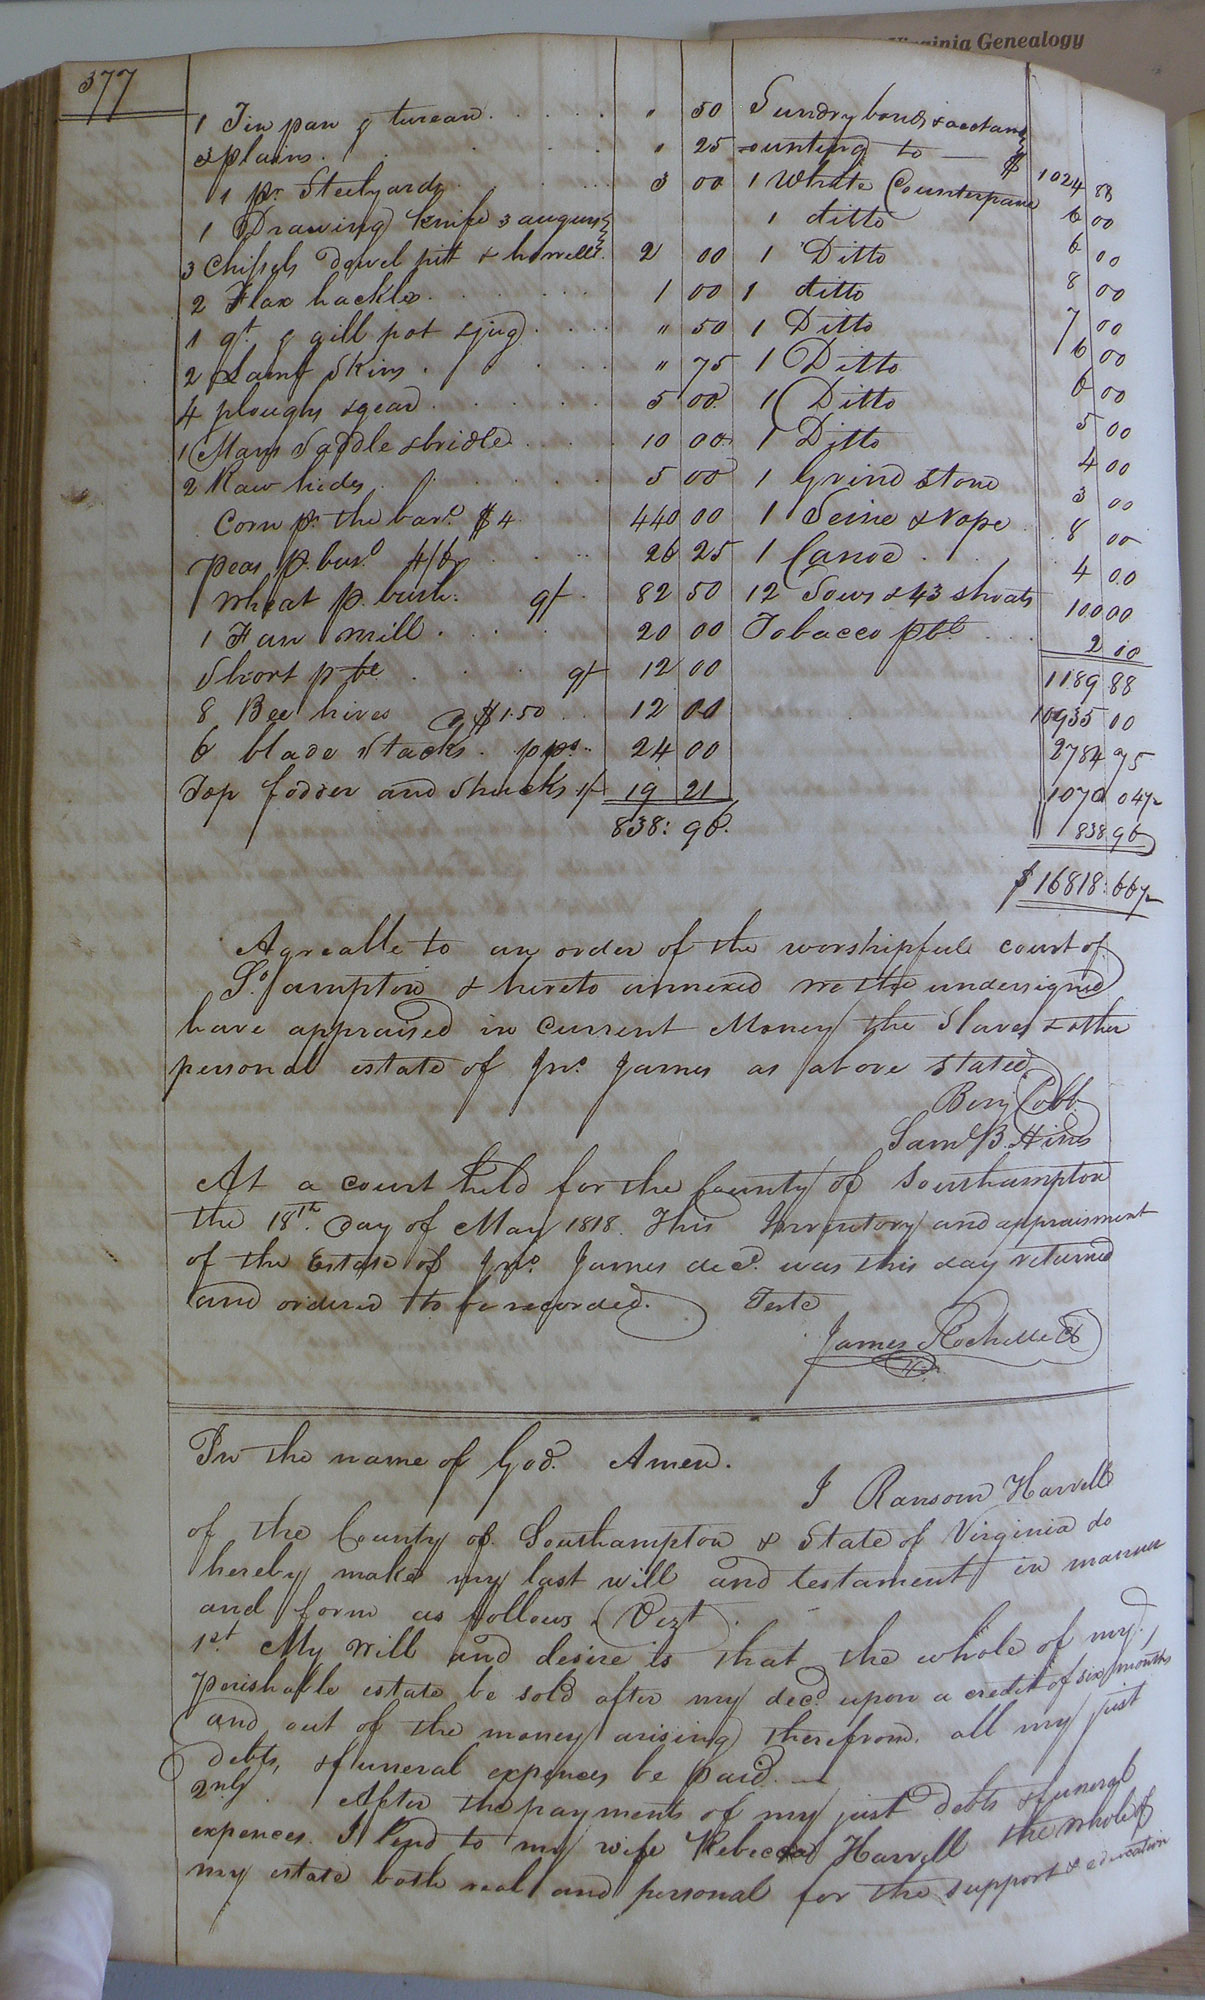 Virginia Genealogy
377
1 Tin pan & turean . . . . . " 50
3 plains . . . . " 25
1 pr. Steelyards . . . 3 00
1 Drawing knife 3 augurs
3 Chissels Dowel pitt & howell. 2 00
2 Flax hackles . . . . . 1 00
1 qt. & gill pot & jug . . . . " 50
2 Lamb Skins . . . . " 75
4 ploughs & gear . . . . . 5 00
1 Mans Saddle & bridle . . . 10 00
2 Raw hides . . . . . 5 00
Corn pr. the barl. $4 440 00
Peas p. busl. 4/6 . . . 26 25
Wheat p. bush. 9/- . 82 50
1 Fan mill . . . . 20 00
Short p ble . . . . 9/- 12 00
8 Bee hives @ $1.50 . . 12 00
6 blade Stacks . pps. . . 24 00
Top fodder and Shucks 19 21
838: 96.
Sundry bonds & acctam
ounting to — $ 1024 88
1 White Counterpane 6 00
1 ditto 6 00
1 Ditto 8 00
1 ditto 7 00
1 Ditto 6 00
1 Ditto 6 00
1 Ditto 5 00
1 Ditto 4 00
1 Grind Stone 3 00
1 Seine & Rope . 8 00
1 Canoe . . . 4 00
12 Sows & 43 shoats 100 00
Tobacco pbl . . . 2 00
1189 88
10935 00
2784 75
1070 04½
838 96
$ 16818:667½
Agreable to an order of the worshipfull court of
So.ampton & hereto annexed we the undersigned
have appraised in Current Money the Slaves & other
personal estate of Jno. James as above stated.
Benj Cobb
Saml B. Hines
At a court held for the County of Southampton
the 18th. Day of May 1818. This Inventory and appraisment
of the Estate of Jno. James decd. was this day returned
and ordered to be recorded. Teste
James Rochelle Ck
In the name of God. Amen.
I Ransom Harvell
of the County of Southampton & State of Virginia do
hereby make my last will and testament in manner
and form as follows (Vizt.
1st. My will and desire is that the whole of my
perishable estate be sold after my decd. upon a credit of six months
and out of the money arising therefrom. all my just
debts, & funeral expences be paid. —
2nly. After the payments of my just debts & funeral
expences. I lend to my wife Rebecca Harvell the whole of
my estate both real and personal for the support & education